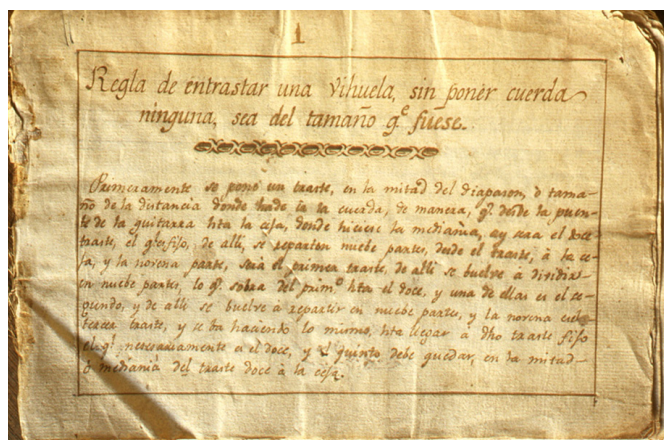 1
Regla de entrastar una Vihuela, sin ponèr cuerda
ninguna, sea del tamaño q.e fuese.
Primeramente se pone un traste, en la mitad del diapason, ò tama-
ño de la distancia donde hade la cuerda, de manera, q.e desde la puen-
te de la guitarra hta la cefa, donde hiciere la mediania, ay sera el doce
traste, el q.e es fifo, de alli, se reparten nuebe partes, desde el traste, à la ce-
fa, y la novena parte, serà el primer traste, de alli se buelve à dividir
en nuebe partes, lo q.e sobra del prim.o hta el doce, y una de ellas es el se-
gundo, y de alli se buelve à repartir en nuebe partes, y la novena es el
tercer traste, y se va haciendo lo mismo, hta llegar à dho traste fifo
necesariamente a el doce, y el quinto debe quedar, en la mitad
ò mediania del traste doce à la cefa.